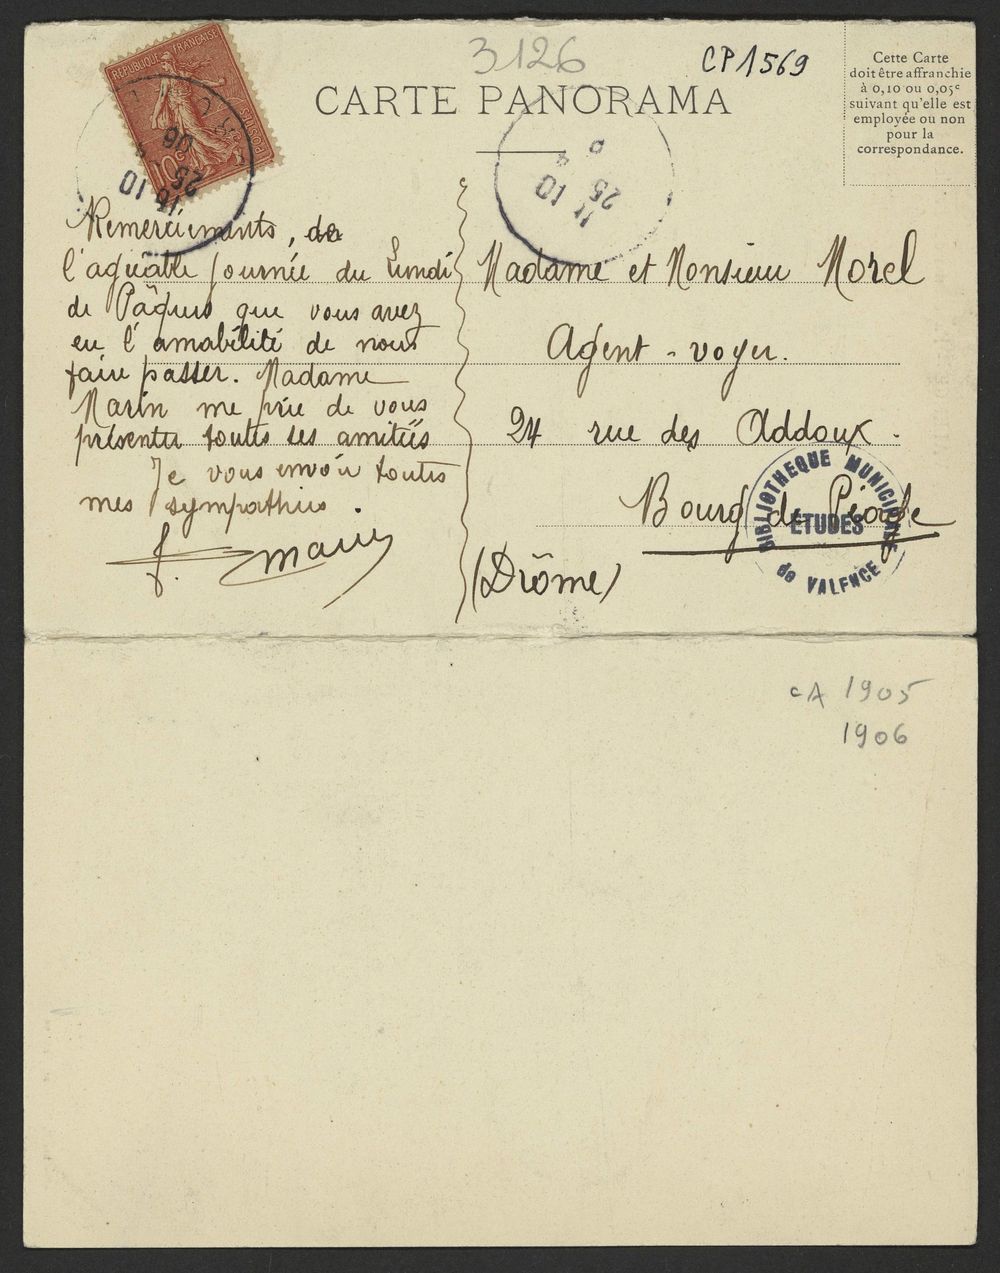 3126
CP1569
CARTE PANORAMA
Cette Carte
doit être affranchie
à 0,10 ou 0,05c
suivant qu'elle est
employée ou non
pour la
correspondance.
REPUBLIQUE FRANÇAISE
POSTES
10c
16 10
25
06
11 10
25
Remerciements, de
l'agréable journée du Lundi
de Pâques que vous avez
eu l'amabilité de nous
faire passer. Madame
Marin me prie de vous
présenter toutes ses amitiés
Je vous envoie toutes
mes sympathies.
Madame et Monsieur Morel
Agent-voyer.
24 rue des Addoux.
Bourg de Péage
(Drôme)
BIBLIOTHEQUE MUNICIPALE
ÉTUDES
de VALENCE
cA 1905
1906